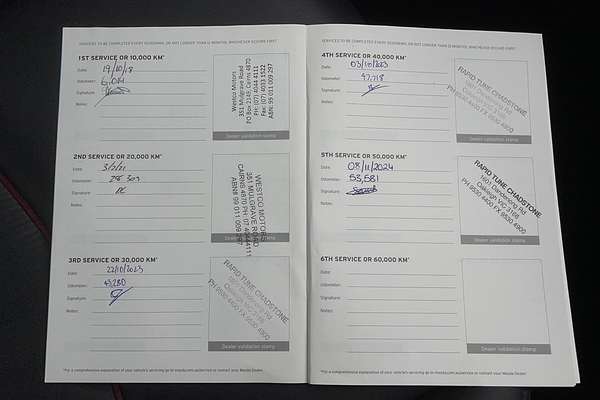 SERVICES TO BE COMPLETED EVERY 10,000KMS, OR NOT LONGER THAN 12 MONTHS, WHICHEVER OCCURS FIRST
1ST SERVICE OR 10,000 KM*
Date: 19/10/18
Odometer: 6,014
Signature:
Notes:
Westco Motors
351 Mulgrave Road
PO Box 2149, Cairns 4870
PH: (07) 4044 4111
Fax: (07) 4033 1522
ABN: 99 011 009 297
Dealer validation stamp
2ND SERVICE OR 20,000 KM*
Date: 3/2/21
Odometer: 28 303
Signature:
Notes:
WESTCO MOTORS
351 MULGRAVE ROAD
CAIRNS 4870 PH: 07 4044 4111
ABN# 99 011 009
3RD SERVICE OR 30,000 KM*
Date: 22/10/2023
Odometer: 43,280
Signature:
Notes:
RAPID TUNE CHADSTONE
1601 Dandenong Rd
Oakleigh VIC 3166
PH 9530 4400 FX 9530 4900
Dealer validation stamp
*For a comprehensive explanation of your vehicle's servicing go to mazda.com.au/service or contact your Mazda Dealer.
SERVICES TO BE COMPLETED EVERY 10,000KMS, OR NOT LONGER THAN 12 MONTHS, WHICHEVER OCCURS FIRST
4TH SERVICE OR 40,000 KM*
Date: 03/10/2023
Odometer: 47,718
Signature:
Notes:
RAPID TUNE CHADSTONE
1601 Dandenong Rd
Oakleigh VIC 3166
PH 9530 4400 FX 9530 4900
Dealer validation stamp
5TH SERVICE OR 50,000 KM*
Date: 08/11/2024
Odometer: 53,581
Signature:
Notes:
RAPID TUNE CHADSTONE
1601 Dandenong Rd
Oakleigh VIC 3166
PH 9530 4400 FX 9530 4900
Dealer validation stamp
6TH SERVICE OR 60,000 KM*
Date:
Odometer:
Signature:
Notes:
Dealer validation stamp
*For a comprehensive explanation of your vehicle's servicing go to mazda.com.au/service or contact your Mazda Dealer.